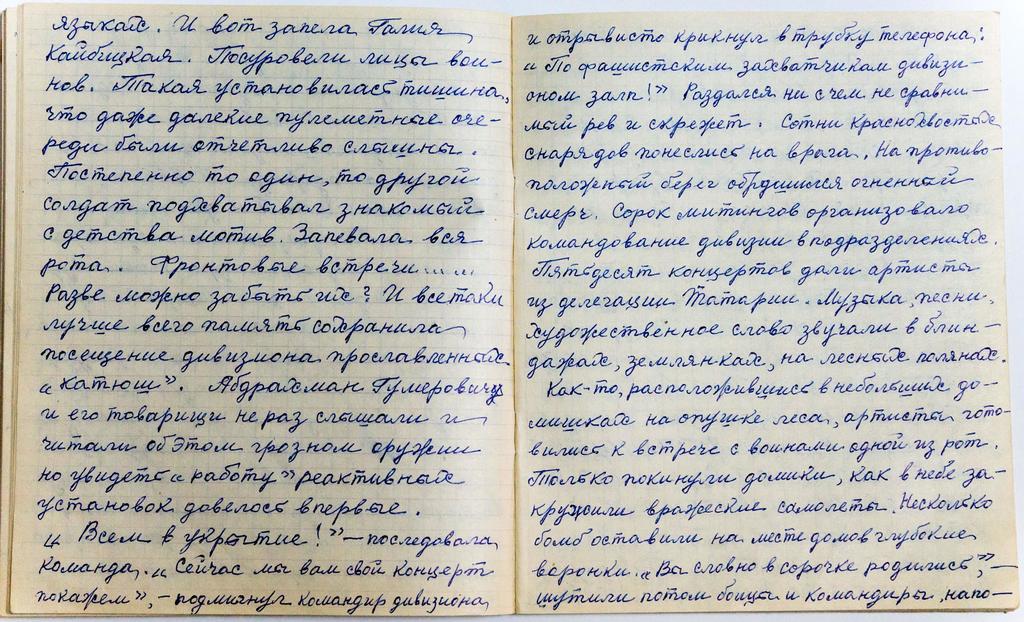 языках. И вот запела Галия
Кайбицкая. Посуровели лица вои-
нов. Такая установилась тишина,
что даже далекие пулеметные оче-
реди были отчетливо слышны.
Постепенно то один, то другой
солдат подхватывал знакомый
с детства мотив. Запевала вся
рота. Фронтовые встречи......
Разве можно забыть их? И все таки
лучше всего память сохранила
посещение дивизиона прославленных
"катюш". Абдрахман Гумерович
и его товарищи не раз слышали и
читали об этом грозном оружии
но увидеть "работу" реактивных
установок довелось впервые.
"Всем в укрытие!" – последовала
команда. "Сейчас мы вам свой концерт
покажем", – подмигнул командир дивизиона
и отрывисто крикнул в трубку телефона:
"По фашистским захватчикам дивизи-
оном залп!" Раздался ни с чем не сравни-
мый рев и скрежет. Сотни краснохвостых
снарядов понеслись на врага. На противо-
положный берег обрушился огненный
смерч. Сорок митингов организовало
командование дивизии в подразделениях.
Пятьдесят концертов дали артисты
из делегации Татарии. Музыка, песни,
художественное слово звучали в блин-
дажах, землянках, на лесных полянах.
Как-то, расположившись в небольших до-
мишках на опушке леса, артисты гото-
вились к встрече с воинами одной из рот.
Только покинули домики, как в небе за-
кружили вражеские самолеты. Несколько
бомб оставили на месте домов глубокие
воронки. "Вы словно в сорочке родились", –
шутили потом бойцы и командиры, напо-